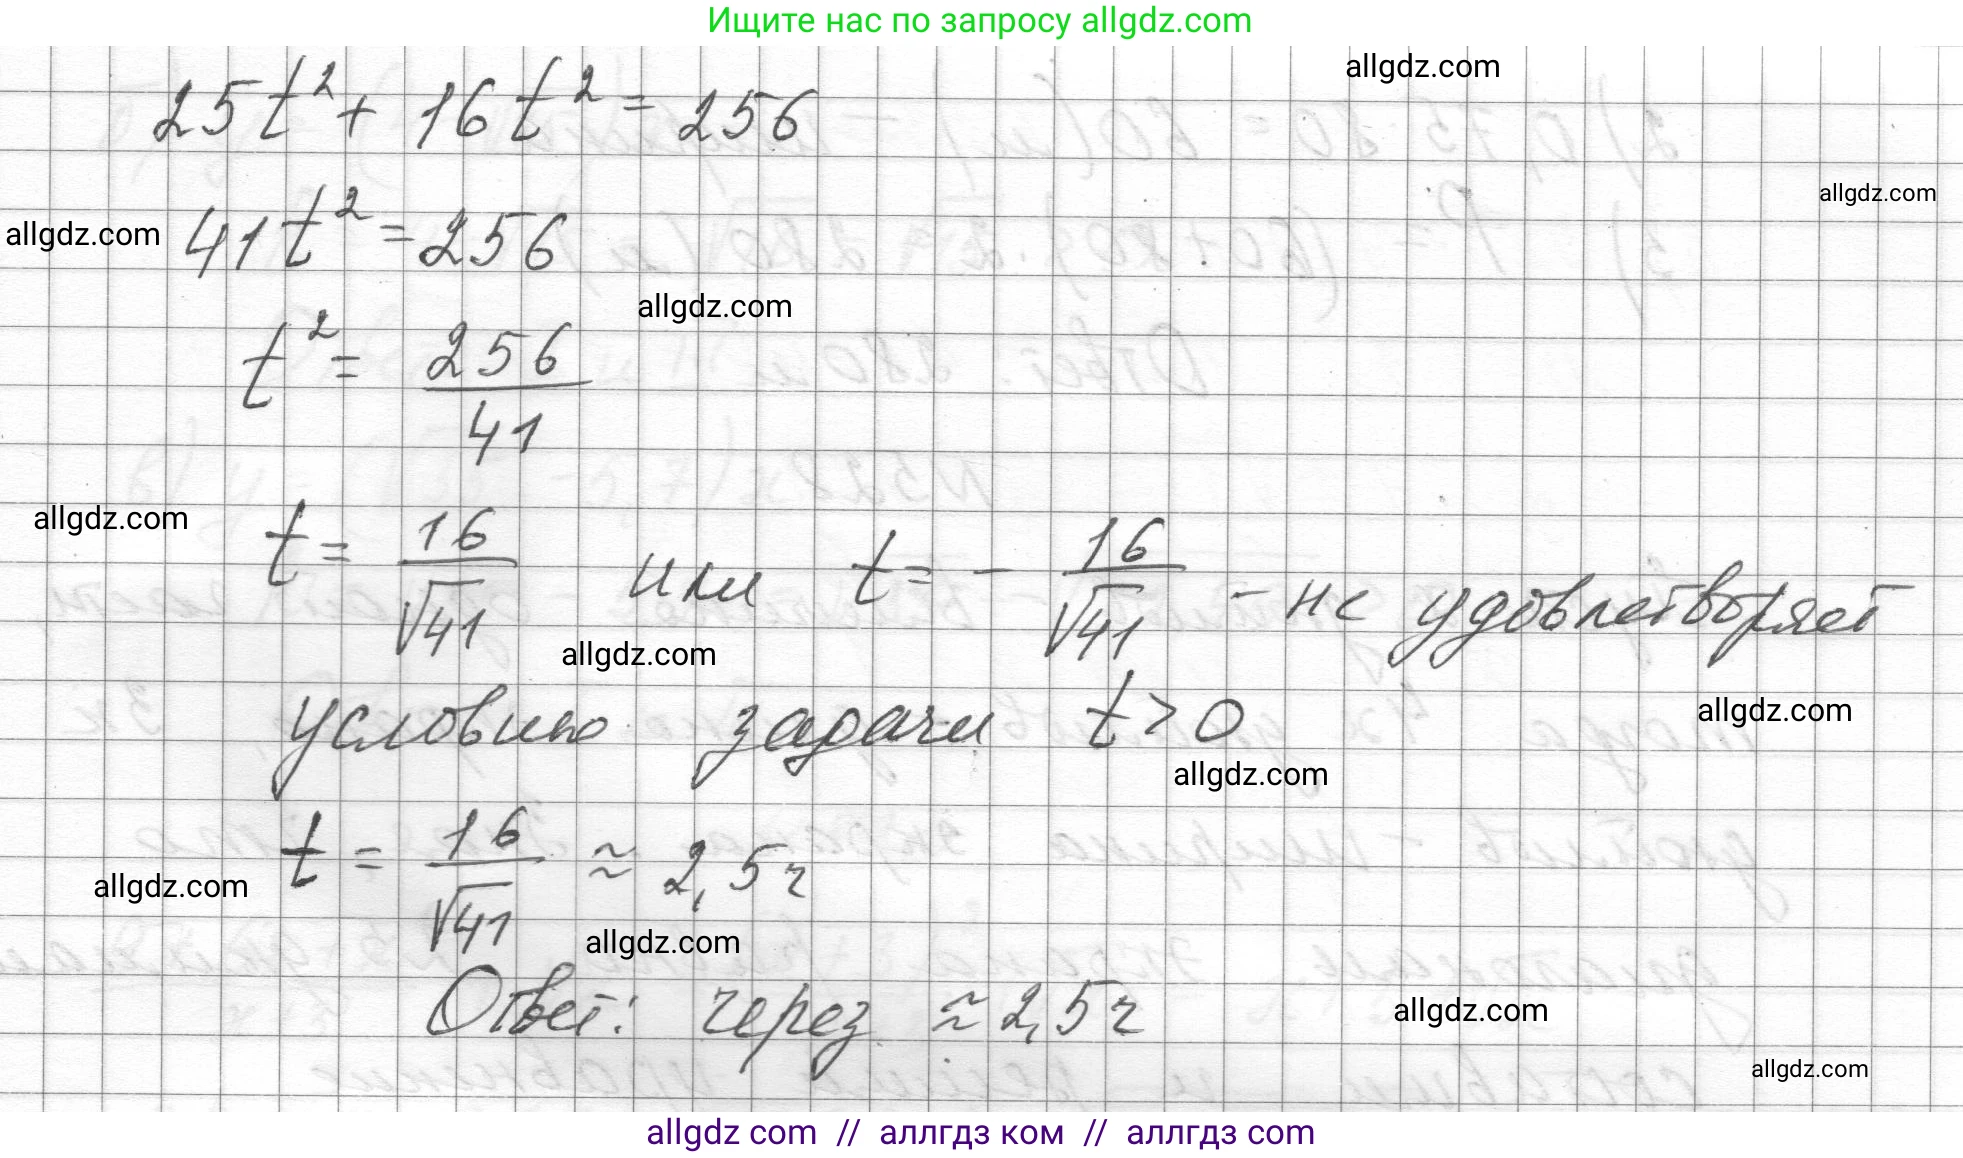 Ищите нас по запросу allgdz.com
allgdz.com
25t² + 16t² = 256
allgdz.com
allgdz.com
41t² = 256
allgdz.com
t² = 256/41
allgdz.com
t = 16/√41 или t = - 16/√41 - не удовлетворяет
allgdz.com
условию задачи t > 0
allgdz.com
allgdz.com
t = 16/√41 ≈ 2,5ч
allgdz.com
allgdz.com
Ответ: через ≈ 2,5ч
allgdz.com
allgdz.com
allgdz com // аллгдз ком // аллгдз com